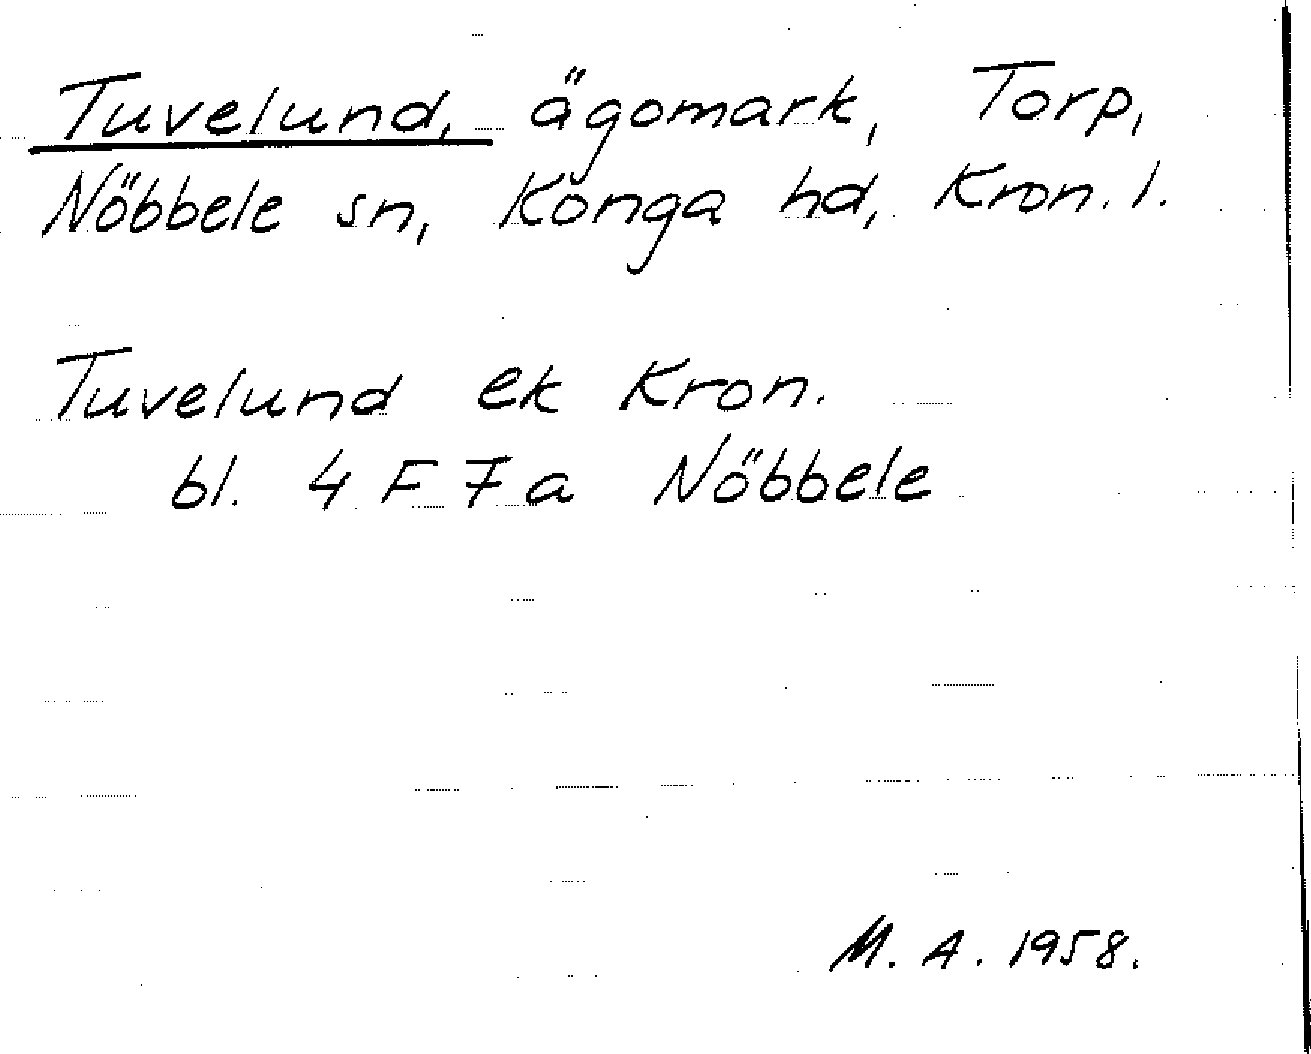 Tuvelund, ägomark, Torp,
Nöbbele sn, Konga hd, Kron. l.
Tuvelund ek Kron.
bl. 4 F 7 a Nöbbele
M. A. 1958.